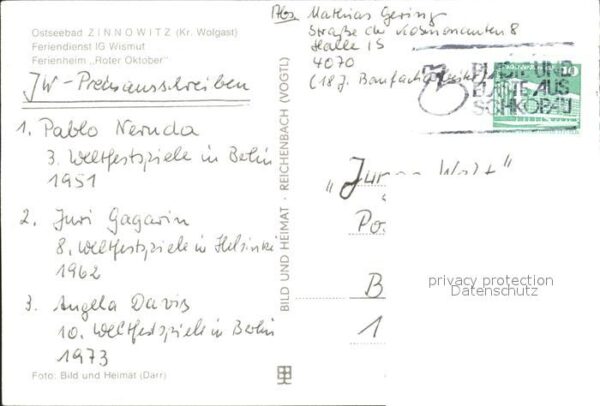 Ostseebad ZINNOWITZ (Kr. Wolgast)
Feriendienst IG Wismut
Ferienheim „Roter Oktober"
JW-Preisausschreiben
1. Pablo Neruda
3. Weltfestspiele in Berlin
1951
2. Juri Gagarin
8. Weltfestspiele in Helsinki
1962
3. Angela Davis
10. Weltfestspiele in Berlin
1973
Foto: Bild und Heimat (Darr)
BILD UND HEIMAT · REICHENBACH (VOGTL)
Abs. Mathias Gering
Straße der Kosmonauten 8
Halle 15
4070
(18 J.
PLASTE UND
ELASTE AUS
SCHKOPAU
10
"Junge Welt"
Po
B
1
privacy protection
Datenschutz